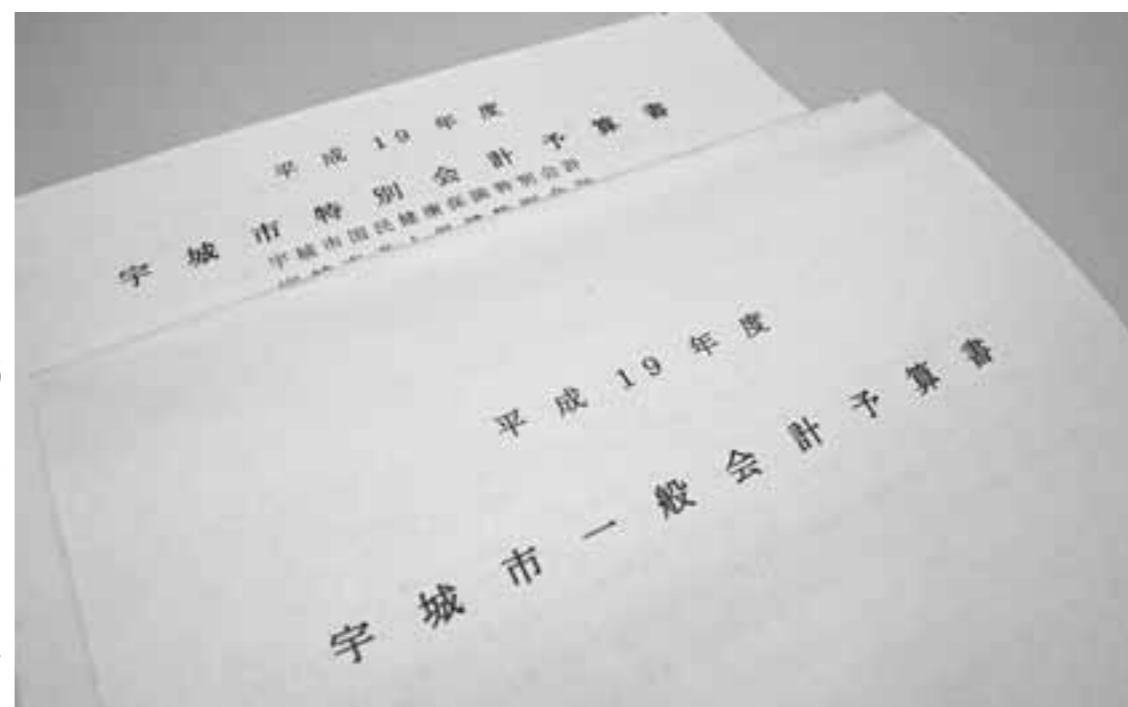 平成19年度
宇城市特別会計予算書
宇城市国民健康保険特別会計
平成19年度
宇城市一般会計予算書